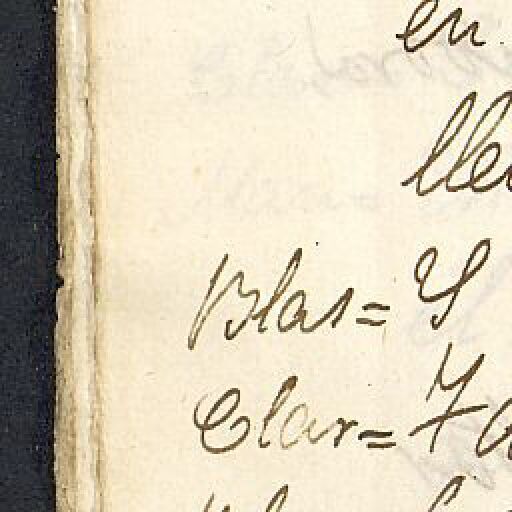 en
lle
Blas= Y
Clar=